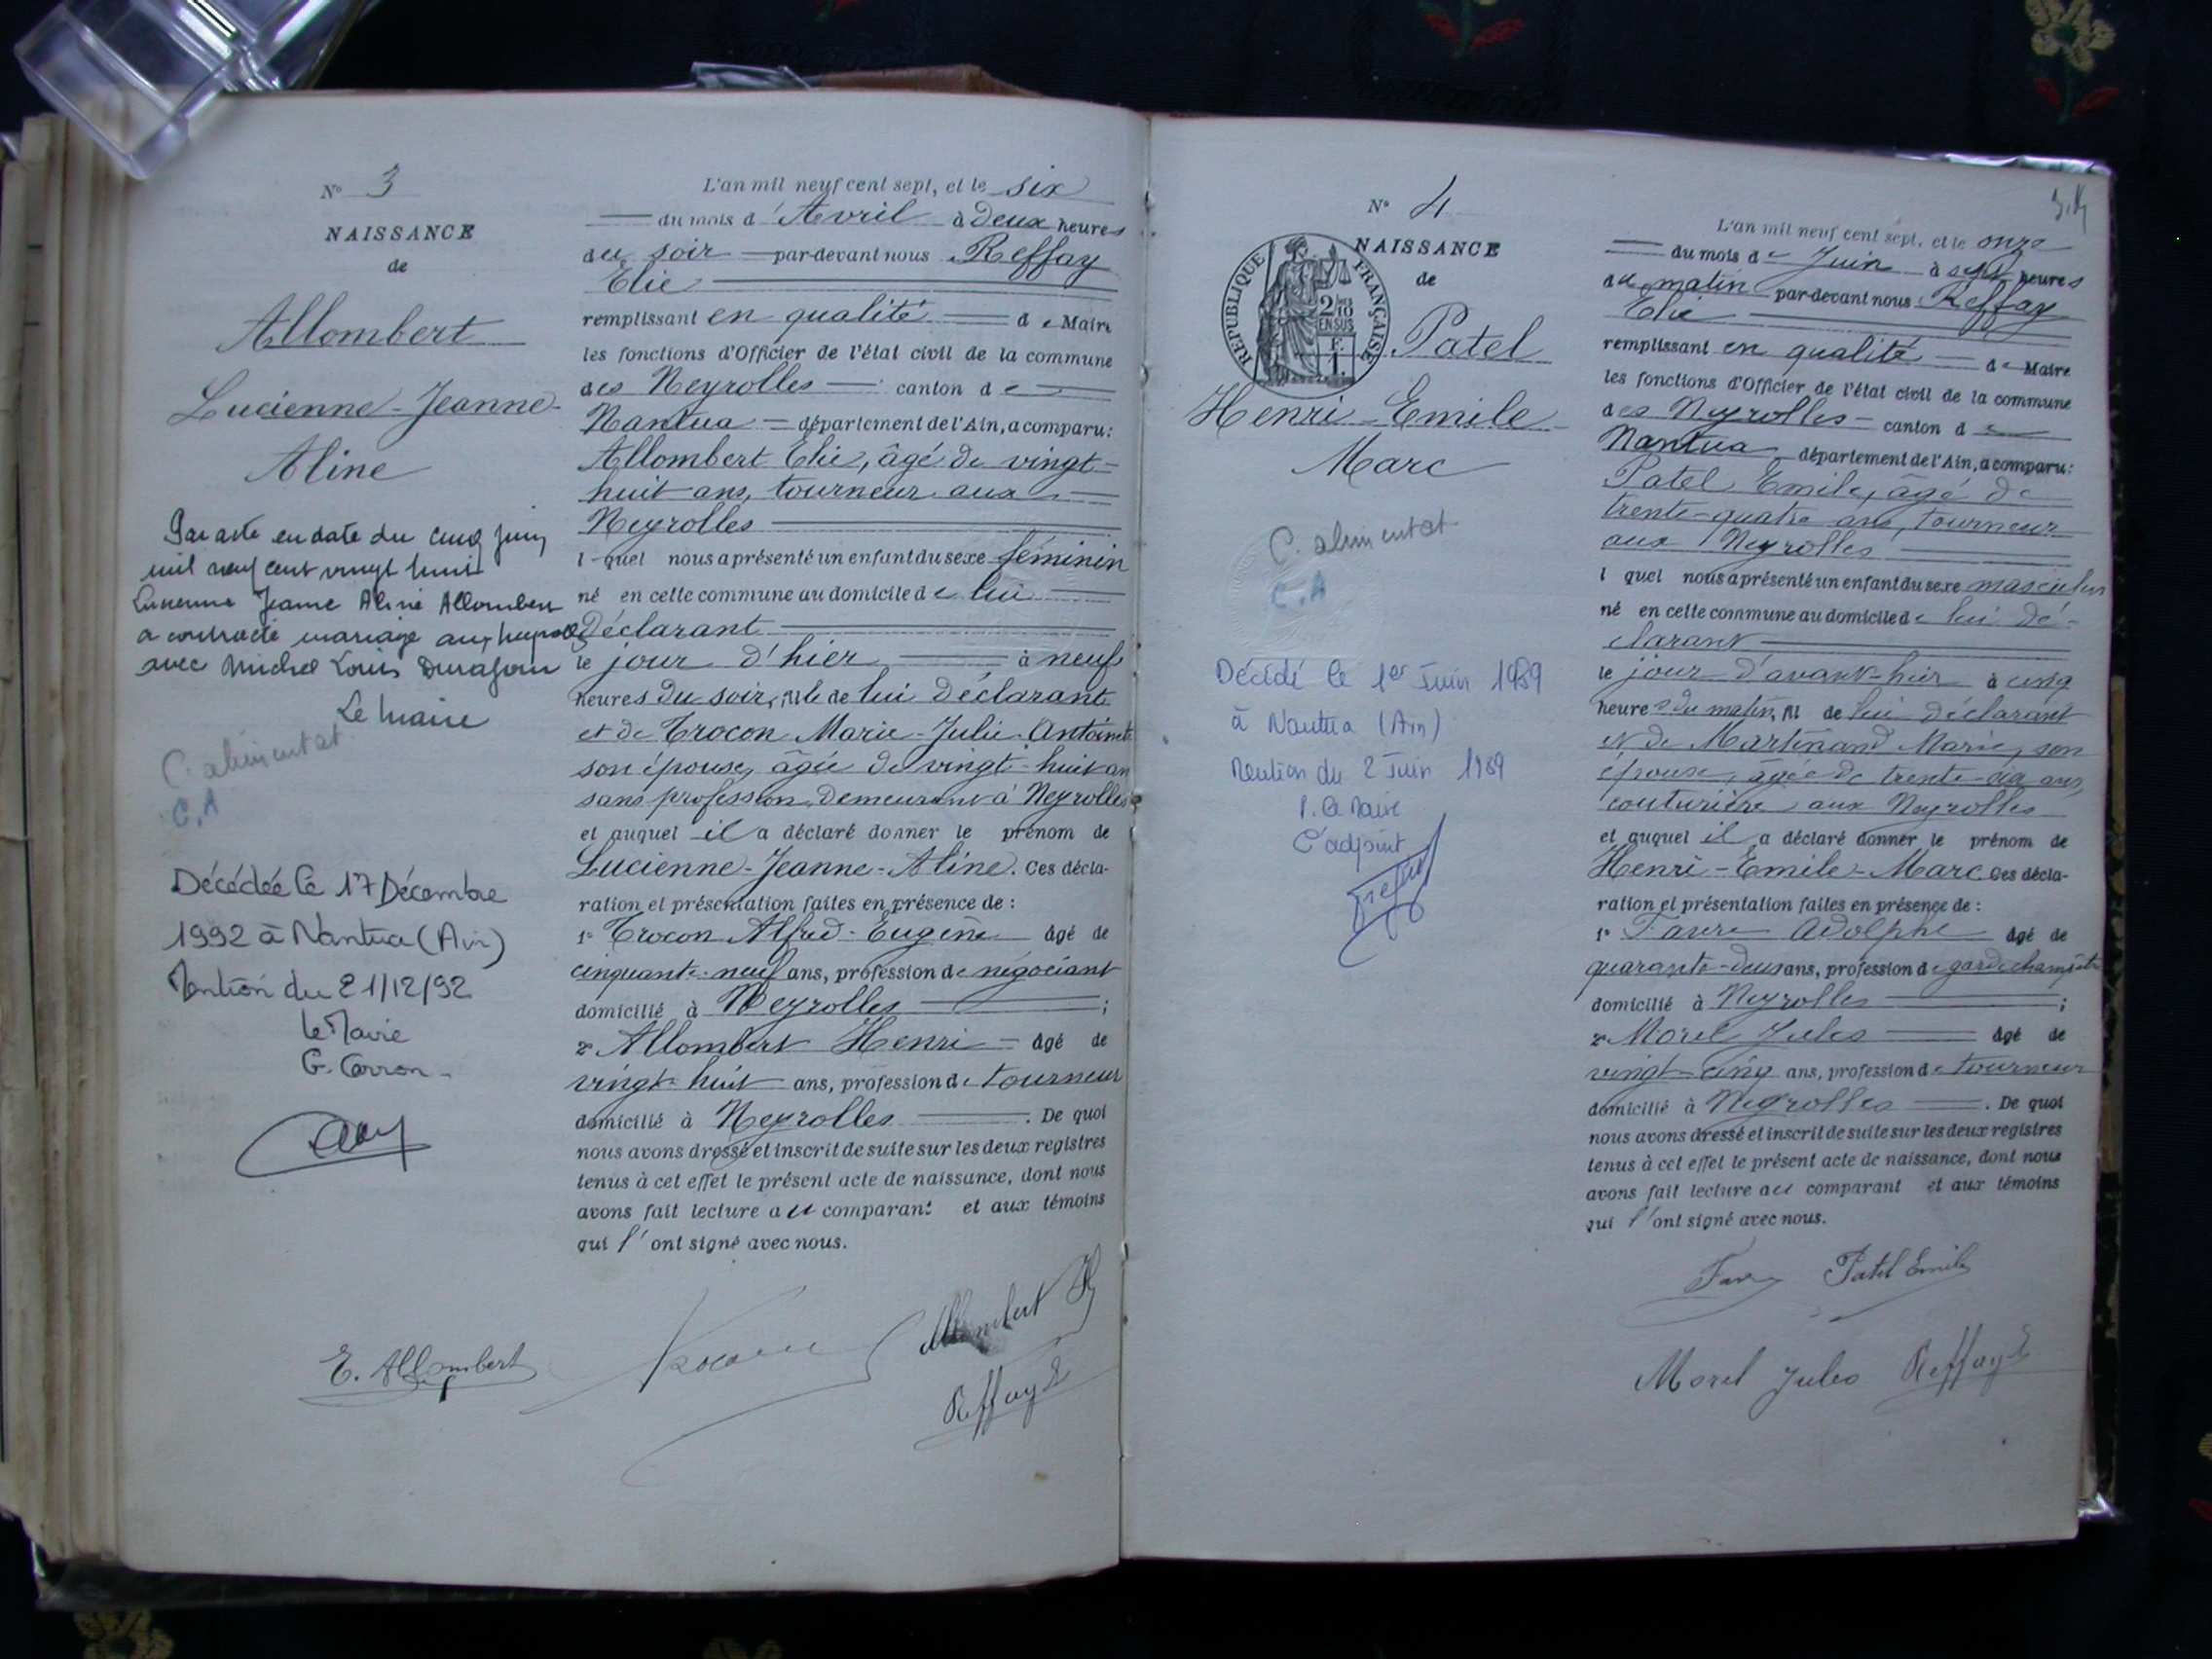 N° 3
NAISSANCE
de
Allombert
Lucienne-Jeanne-
Aline
Par acte en date du cinq juin
mil neuf cent vingt huit
Lucienne Jeanne Aline Allombert
a contracté mariage aux
avec Michel Louis
Le Maire
C. alimentat
C.A
Décédée le 17 Décembre
1992 à Nantua (Ain)
Mention du 21/12/92
le Maire
G. Carron
L'an mil neuf cent sept, et le six
du mois d'Avril à deux heures
du soir par-devant nous Reffay
Elie
remplissant en qualité de Maire
les fonctions d'Officier de l'état civil de la commune
des Neyrolles canton de
Nantua département de l'Ain, a comparu:
Allombert Elie, âgé de vingt-
huit ans, tourneur aux
Neyrolles
lequel nous a présenté un enfant du sexe féminin
né en cette commune au domicile de lui
déclarant
le jour d'hier à neuf
heures du soir, fille de lui déclarant
et de Crocon Marie-Julie-Antoinette
son épouse, âgée de vingt-huit an
sans profession, demeurant à Neyrolles
et auquel il a déclaré donner le prénom de
Lucienne-Jeanne-Aline. Ces décla-
ration et présentation faites en présence de :
1° Crocon Alfred-Eugène âgé de
cinquante-neuf ans, profession de négociant
domicilié à Neyrolles ;
2° Allombert Henri âgé de
vingt-huit ans, profession de tourneur
domicilié à Neyrolles . De quoi
nous avons dressé et inscrit de suite sur les deux registres
tenus à cet effet le présent acte de naissance, dont nous
avons fait lecture au comparant et aux témoins
qui l'ont signé avec nous.
E. Allombert
Allombert H
Reffay E
N° 4
NAISSANCE
de
REPUBLIQUE FRANÇAISE
2/10 EN SUS
F. 1.
Patel
Henri-Emile-
Marc
C. alimentat
C.A
Décédé le 1er Juin 1989
à Nantua (Ain)
Mention du 2 Juin 1989
P. le Maire
L'adjoint
L'an mil neuf cent sept, et le onze
du mois de Juin à sept heures
du matin par-devant nous Reffay
Elie
remplissant en qualité de Maire
les fonctions d'Officier de l'état civil de la commune
des Neyrolles canton de
Nantua département de l'Ain, a comparu:
Patel Emile, âgé de
trente-quatre ans, tourneur
aux Neyrolles
l quel nous a présenté un enfant du sexe masculin
né en cette commune au domicile de lui dé-
clarant
le jour d'avant-hier à cinq
heures du matin, fil de lui déclarant
et de Martinand Marie, son
épouse, âgée de trente-six ans,
couturière aux Neyrolles
et auquel il a déclaré donner le prénom de
Henri-Emile-Marc. Ces décla-
ration et présentation faites en présence de :
1° Favre Adolphe âgé de
quarante-deux ans, profession de garde champêtre
domicilié à Neyrolles ;
2° Morel Jules âgé de
vingt-cinq ans, profession de tourneur
domicilié à Neyrolles . De quoi
nous avons dressé et inscrit de suite sur les deux registres
tenus à cet effet le présent acte de naissance, dont nous
avons fait lecture au comparant et aux témoins
qui l'ont signé avec nous.
Favre Patel Emile
Morel Jules Reffay E